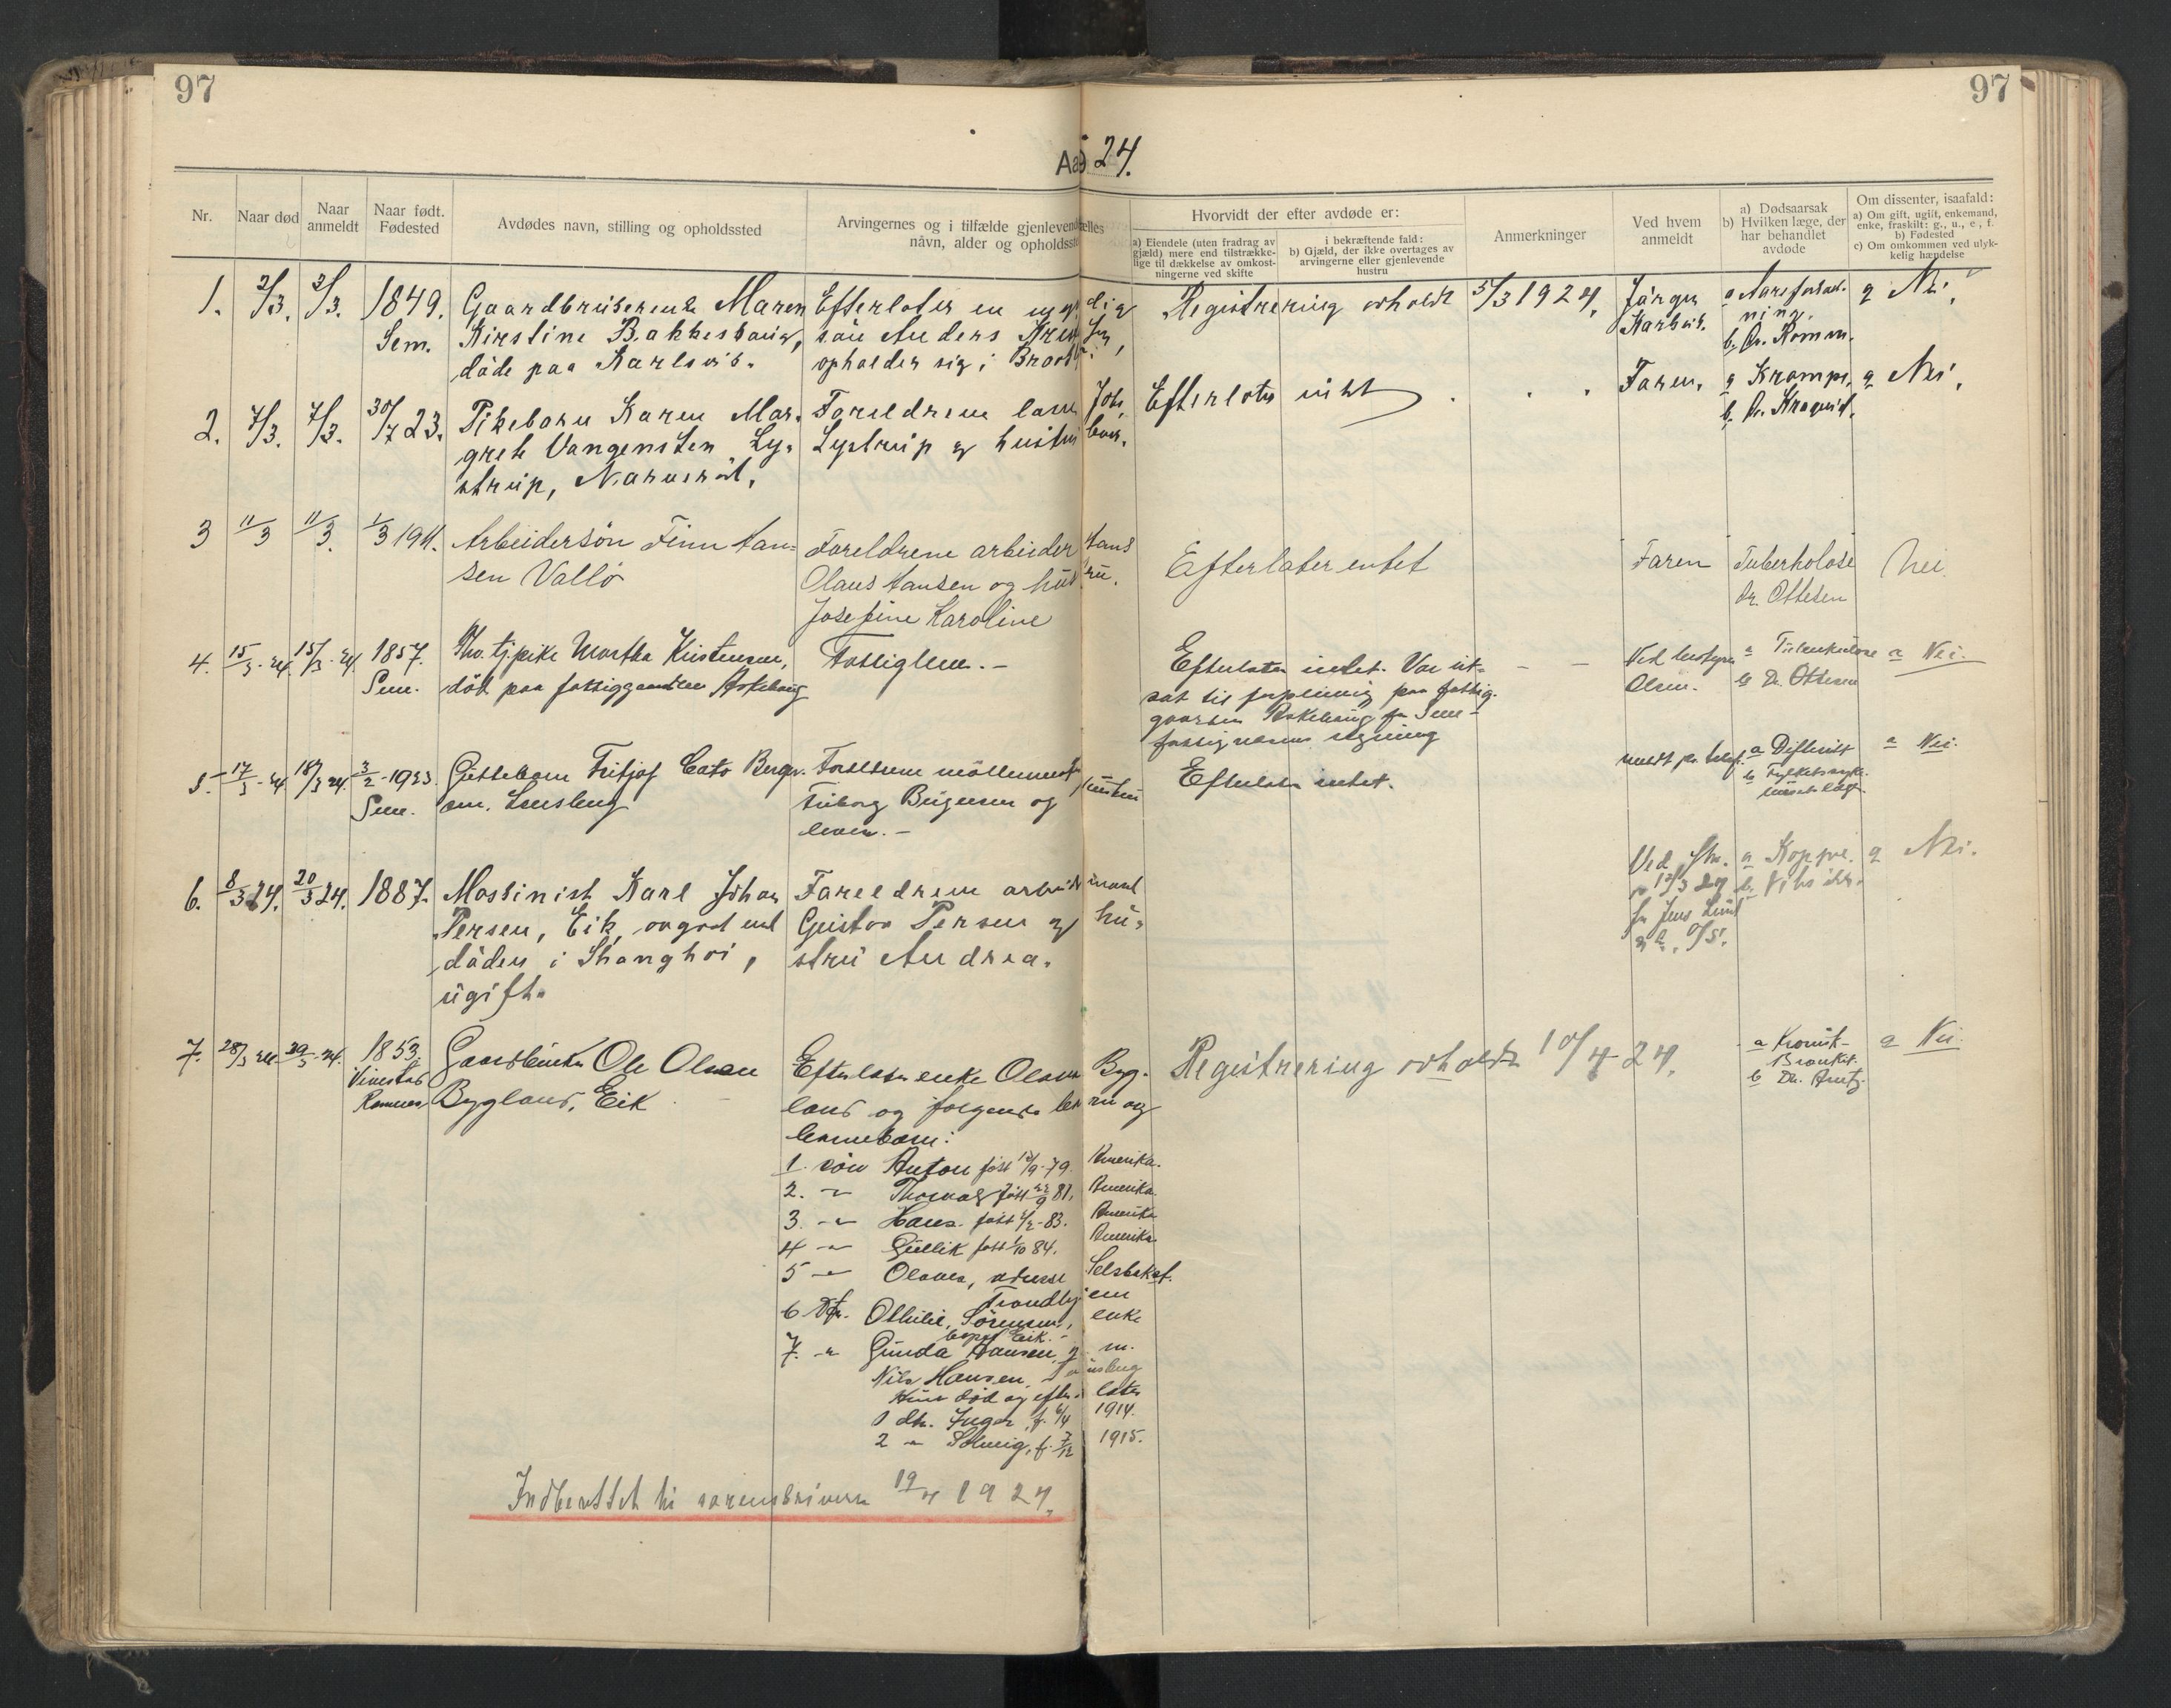 97
97
Aar 1924.
Nr.
Naar død
Naar anmeldt
Naar født. Fødested
Avdødes navn, stilling og opholdssted
Arvingernes og i tilfælde gjenlevende
navn, alder og opholdssted
Hvorvidt der efter avdøde er:
a) Eiendele (uten fradrag av
gjæld) mere end tilstrække-
lige til dækkelse av omkost-
ningerne ved skifte
i bekræftende fald:
b) Gjæld, der ikke overtages av
arvingerne eller gjenlevende
hustru
Anmerkninger
Ved hvem
anmeldt
a) Dødsaarsak
b) Hvilken læge, der
har behandlet
avdøde
Om dissenter, isaafald:
a) Om gift, ugift, enkemand,
enke, fraskilt: g., u., e., f.
b) Fødested
c) Om omkommen ved ulyk-
kelig hændelse
1. 2/3. 2/3. 1849. Sem.
Gaardbrukerenke Maren
Kirstine Bakkeskaug,
døde paa Karlsvik.
Efterlater en myndig
søn Anders
opholder sig i
Registrering avholdt 5/3 1924.
Jørgen
a Aareforkal-
ning.
b. Dr. Romm.
a Nei.
2. 7/3. 7/3. 30/7 23.
Pikebarn Karen Mar-
grete Vangensten Ly-
strup, Narverød.
Foreldrene
Lystrup og hustru
Efterlater intet
Faren.
a Krampe.
b. Dr. Kroqvist.
a Nei.
3 11/3 11/3. 1/3 1911.
Arbeidersøn Finn Han-
sen Vallø
Foreldrene arbeider Hans
Olaus Hansen og hustru.
Josefine Karoline
Efterlater entet
Faren
Tuberkolose
Dr. Ottesen
Nei
4. 15/3-24. 15/3-24. 1857. Sem.
Fhv. tj.pike Martha Kristensen,
død paa fattiggaarden Askehaug
Fattiglem.-
Efterlater intet. Var ut-
sat til forpleining paa fattig-
gaarden Askehaug for Sem
fattigvæsens regning
Ved bestyrer
Olsen.
a Tuberkulose
b Dr. Ottesen
a Nei.
5. 17/3-24 18/3 24. 3/2-1923. Sem.
Guttebarn Fritjof Cato Berge-
sen. Lensberg
Foreldrene
og hustru
Efterlater intet.
meldt pr. telef.
a Difterit
b Fylkessyke-
huset læge
a Nei.
6. 8/3 24. 20/3 24. 1887.
Maskinist Karl Johan
Persen, Eik, avgaat ved
døden i Shanghai,
ugift.
Foreldrene arbeidsmand
Gustav Persen og hu-
stru Andrea.
a Kopper.
b. Vites ikke.
a Nei.
7. 28/3 24. 29/3-24. 1853.
Ramnes
Gaardbruker Ole Olsen
Bygland, Eik
Efterlater enke Olava Byg-
land og følgende børn og
barnebarn:
1. søn Anton født 12/9-79. Amerika.
2. " Thorvald født 22/9 81. Amerika.
3. " Hans født 4/2-83. Amerika
4 " Gullik født 1/10 84. Amerika
5 " Olaves, adresse Selsbakst.
Trondhjem
6 Dtr. Othilie Sørensen, enke
Eik.-
7. " Gunda Hansen, g. m.
Nils Hansen, Tønsberg
Hun død og efterlater
1 dtr. Inger, f. 6/4 1914.
2 " Solveig, f. 7/12 1915.
Registrering avholdt 10/4 24.
a Kronisk
Bronkit.
b Dr. Arntz.
a Nei.
Indberettet til sorenskriveren 19/4 1924.